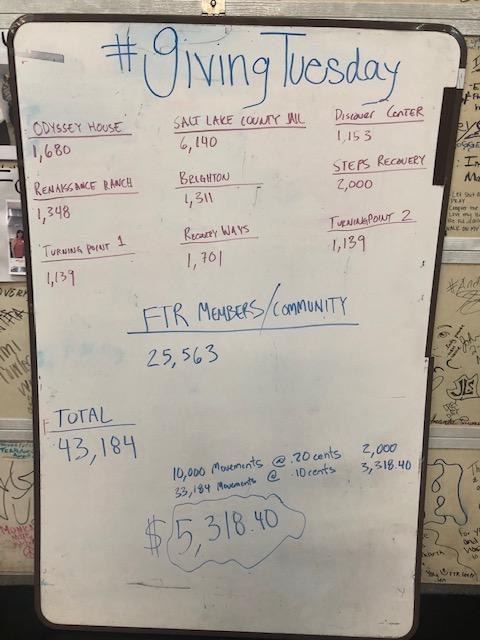 #GivingTuesday
ODYSSEY HOUSE
1,680
SALT LAKE COUNTY JAIL
6,140
DISCOVER CENTER
1,153
RENAISSANCE RANCH
1,348
BRIGHTON
1,311
STEPS RECOVERY
2,000
TURNING POINT 1
1,139
RECOVERY WAYS
1,701
TURNINGPOINT 2
1,139
FTR MEMBERS/COMMUNITY
25,563
TOTAL
43,184
10,000 Movements @ .20 cents 2,000
33,184 Movements @ .10 cents 3,318.40
$5,318.40